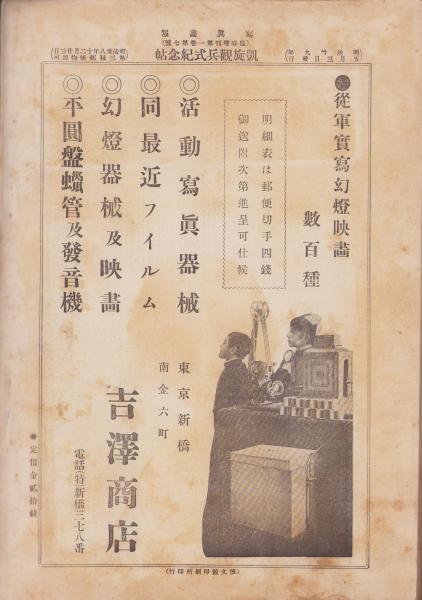 寫真畫報
臨時增刊第一卷第七號
凱旋觀兵式紀念帖
明治卅九年
五月三日發行
明治卅八年十二月廿三日
第三種郵便物認可
從軍實寫幻燈映畵
數百種
明細表は郵便切手四錢
御送附次第進呈可仕候
◎活動寫眞器械
◎同最近フイルム
◎幻燈器械及映畵
◎平圓盤蠟管及發音機
東京新橋
南金六町
吉澤商店
電話(特)新橋三七八番
定價金貳拾錢
(博文館印刷所印行)